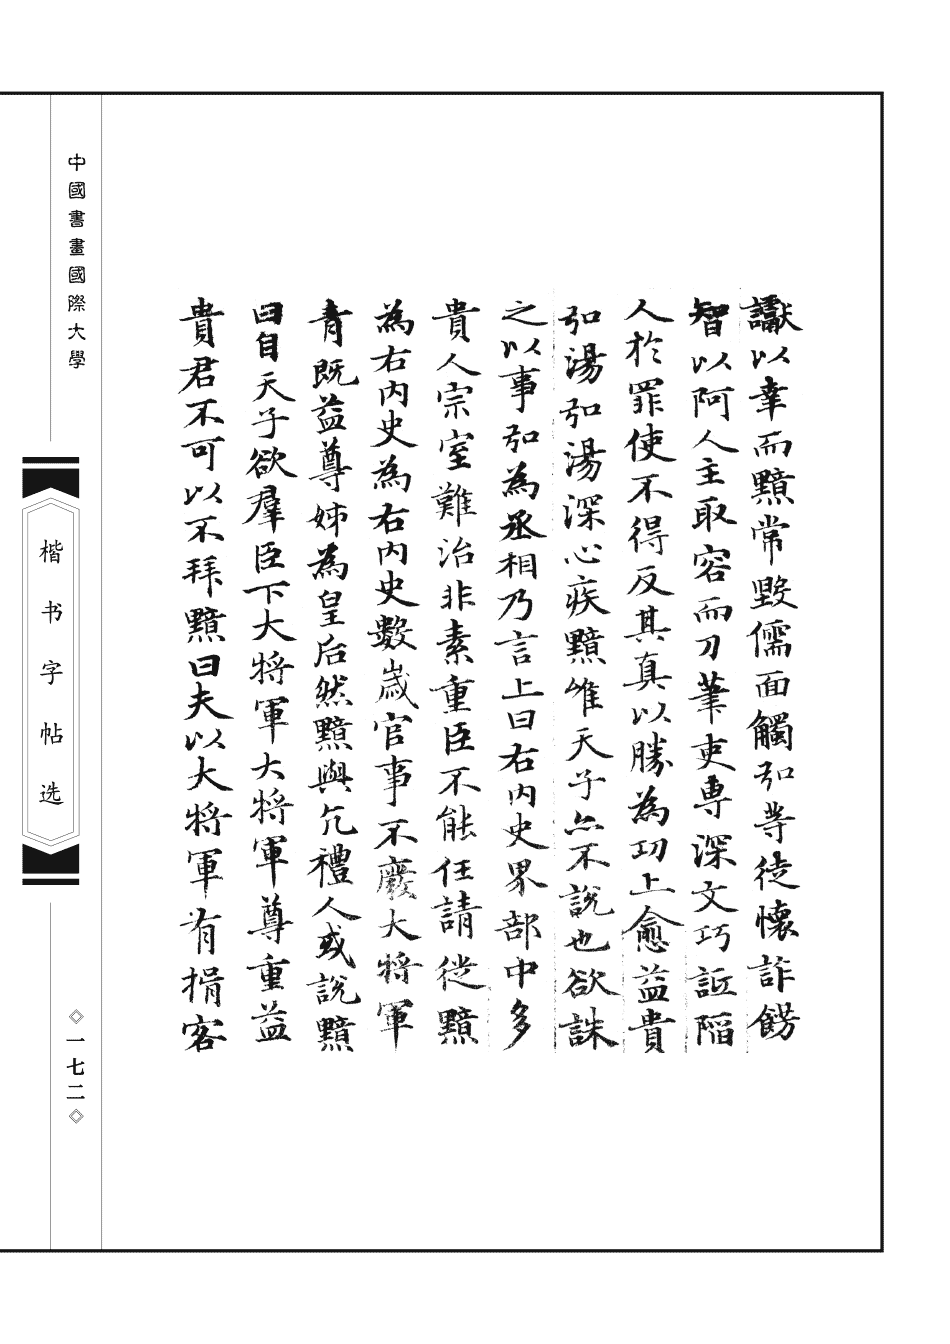 讞以幸而黯常毀儒面觸弘等徒懷詐飾
智以阿人主取容而刀筆吏專深文巧詆陷
人於罪使不得反其真以勝為功上愈益貴
弘湯弘湯深心疾黯唯天子亦不說也欲誅
之以事弘為丞相乃言上曰右內史界部中多
貴人宗室難治非素重臣不能任請徙黯
為右內史為右內史數歲官事不廢大將軍
青既益尊姊為皇后然黯與亢禮人或說黯
曰自天子欲羣臣下大將軍大將軍尊重益
貴君不可以不拜黯曰夫以大將軍有揖客
中國書畫國際大學
楷书字帖选
◇一七二◇